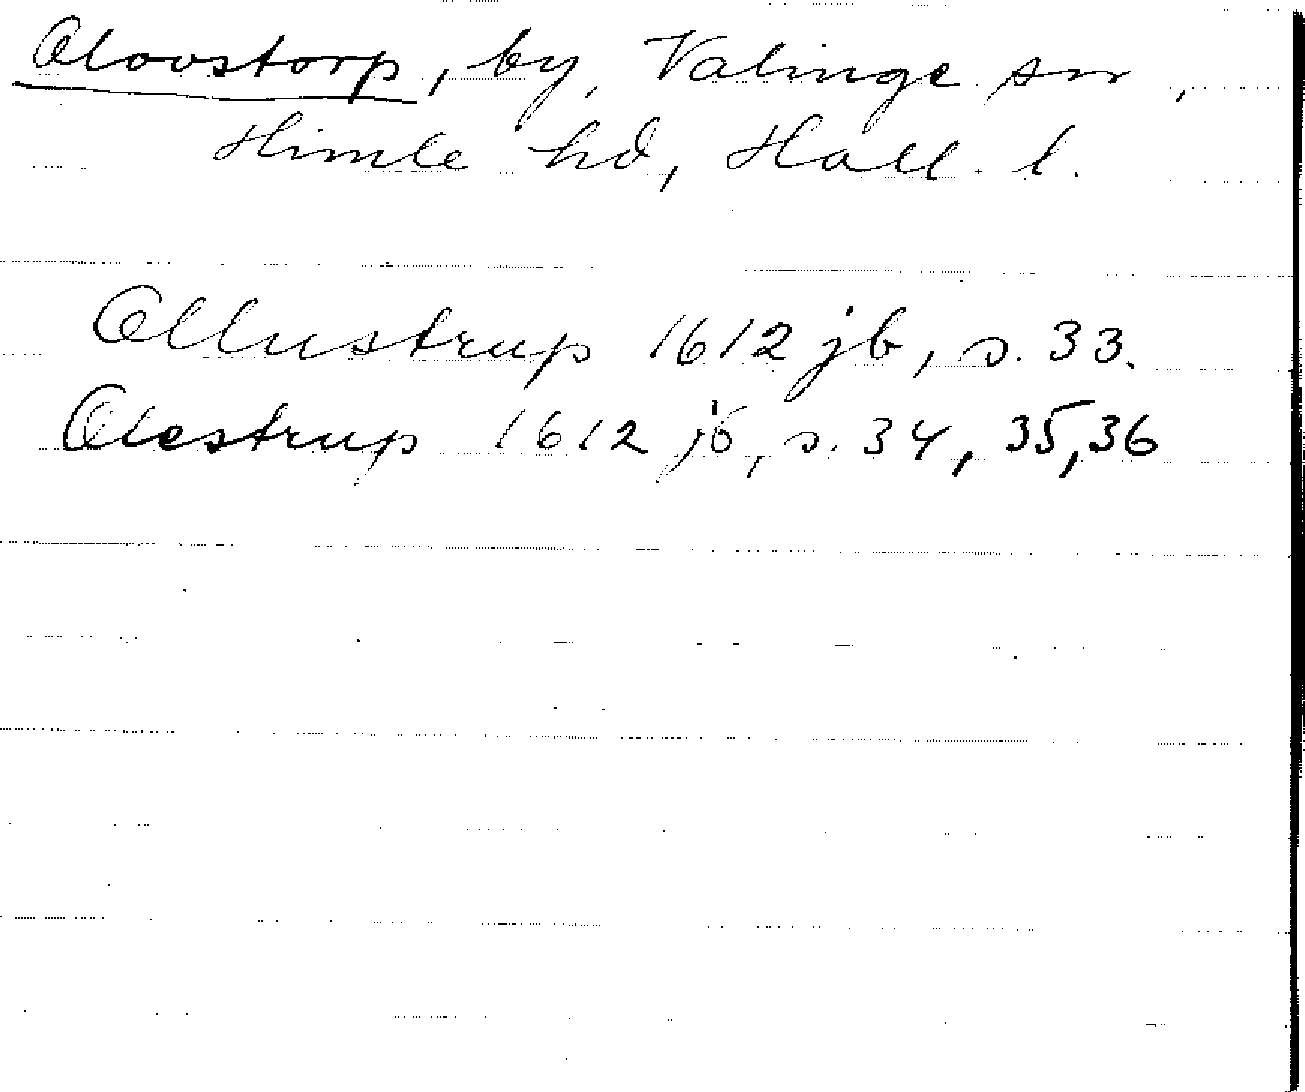 Olovstorp, by, Valinge sn,
Himle hd, Hall. l.
Ollustrup 1612 jb, s. 33.
Olestrup 1612 jb, s. 34, 35, 36